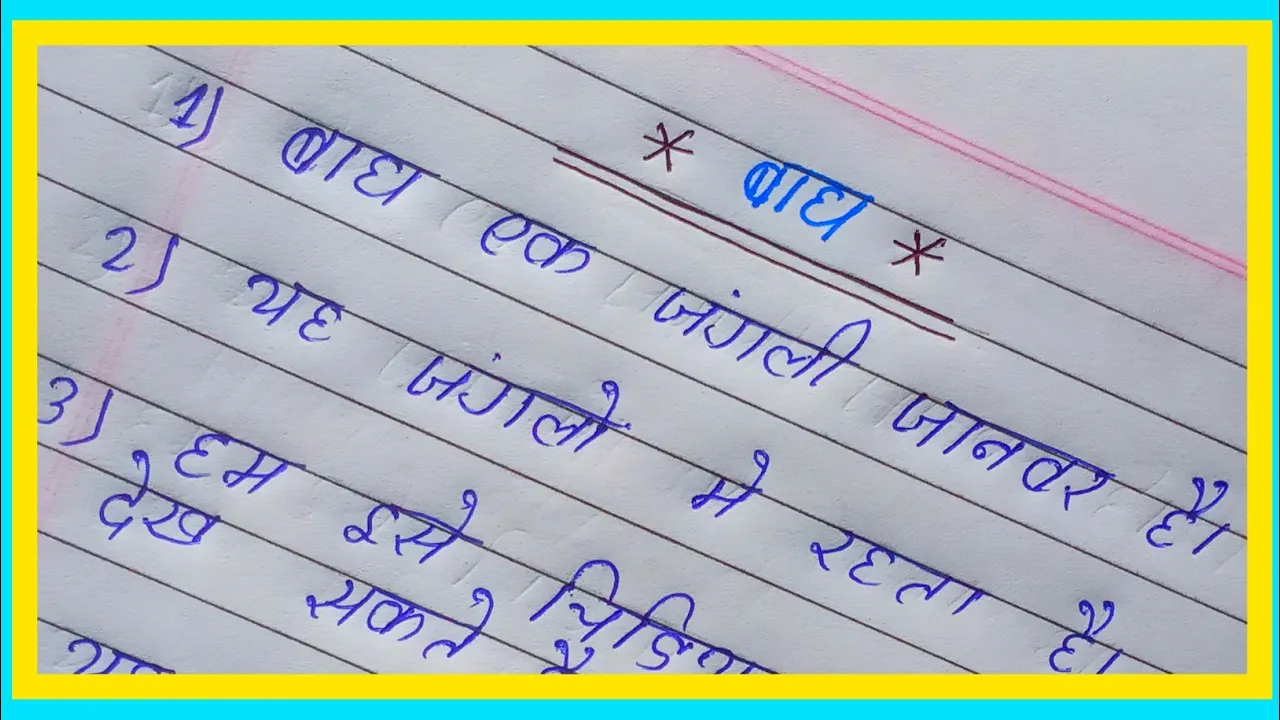 * बाघ *
1) बाघ एक जंगली जानवर है।
2) यह जंगलो मे रहता है।
3) हम इसे
देख सकते